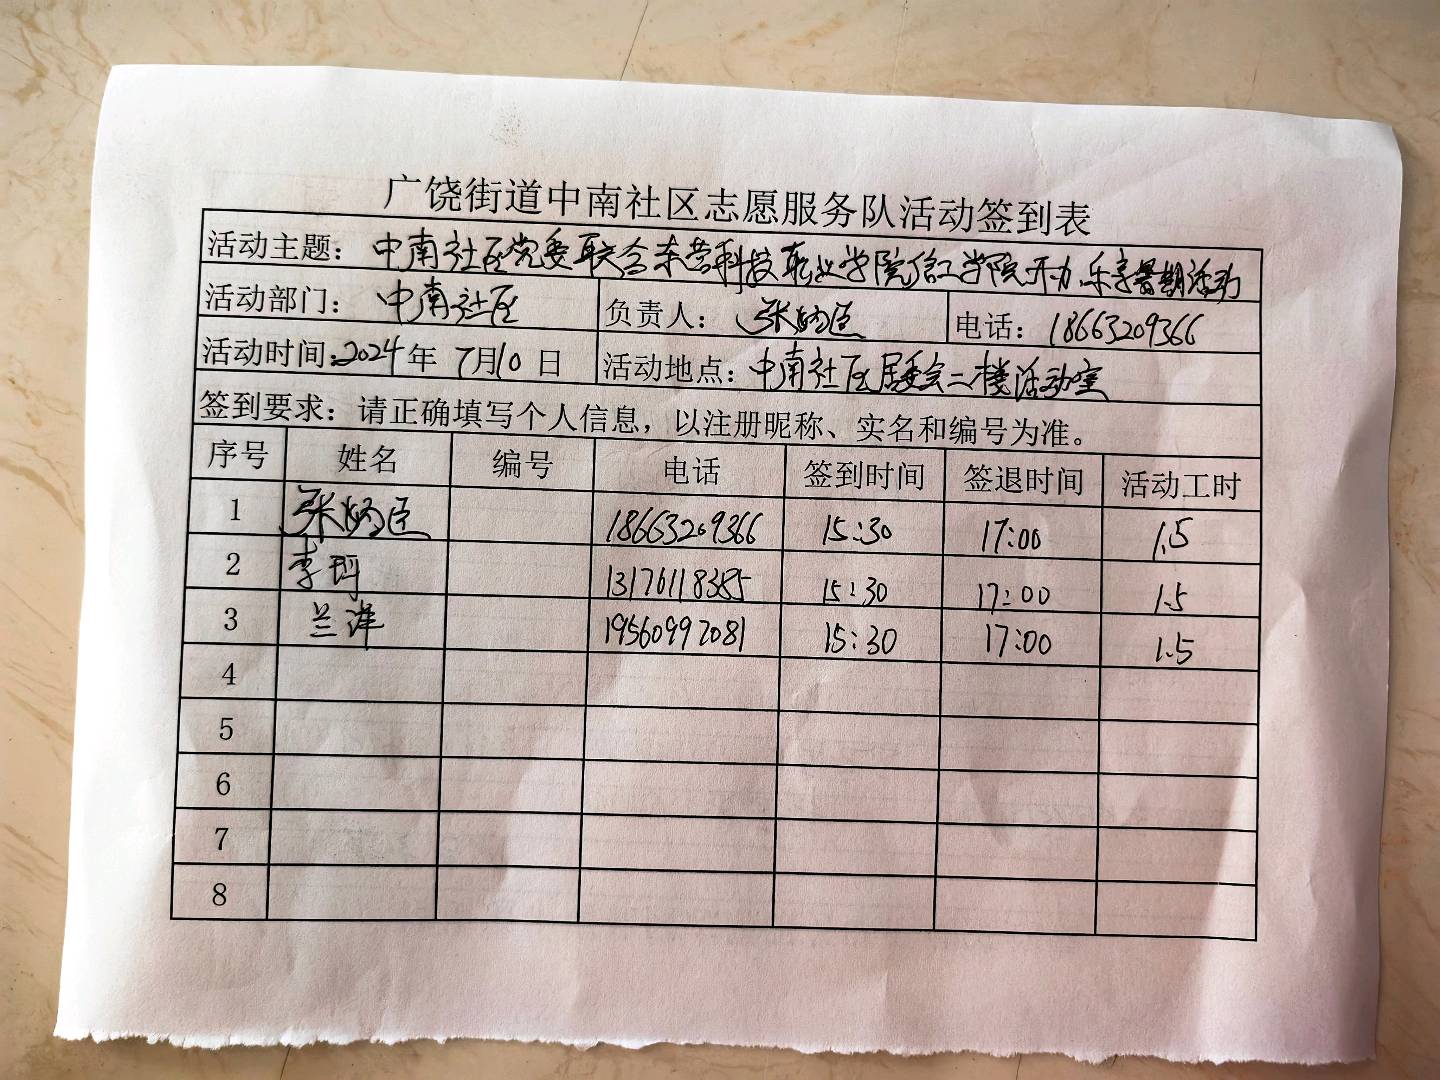 广饶街道中南社区志愿服务队活动签到表
活动主题：中南社区党委联合东营科技职业学院信工学院开办乐享暑期活动
活动部门：中南社区 负责人：张 电话：18663209366
活动时间：2024年 7月10日 活动地点：中南社区居委会二楼活动室
签到要求：请正确填写个人信息，以注册昵称、实名和编号为准。
序号 姓名 编号 电话 签到时间 签退时间 活动工时
1 张 18663209366 15:30 17:00 1.5
2 李 13176118385 15:30 17:00 1.5
3 兰洋 19560997081 15:30 17:00 1.5
4
5
6
7
8